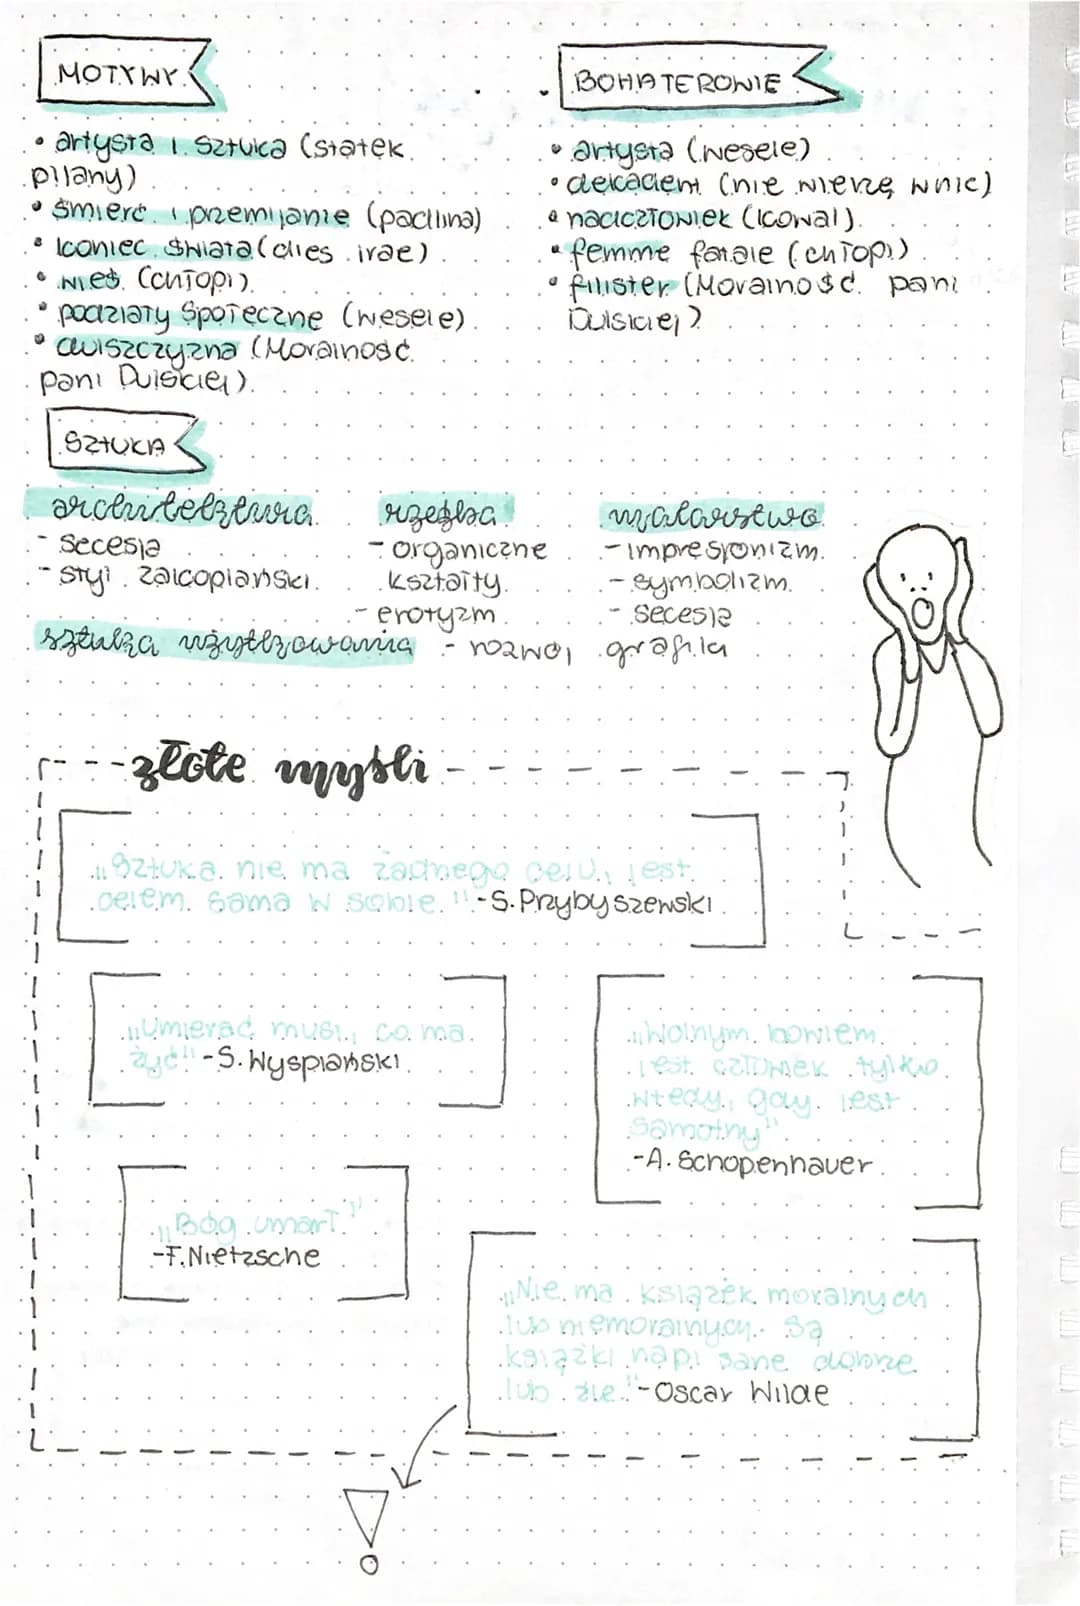 MOTYWY
• artysta i sztuka (statek
pijany)
• śmierć i przemijanie (padlina)
• koniec świata (dies irae)
• wieś (chłopi)
• podziały społeczne (wesele)
• dulszczyzna (Moralność
pani Dulskiej)
BOHATEROWIE
• artysta (wesele)
• dekadent (nie wierzę w nic)
• nadczłowiek (kowal)
• femme fatale (chłopi)
• filister (Moralność pani
Dulskiej)
SZTUKA
architektura
- secesja
- styl zakopiański
rzeźba
- organiczne
kształty
- erotyzm
malarstwo
- impresjonizm
- symbolizm
- secesja
sztuka użytkowania - rozwój grafiki
złote myśli
„Sztuka nie ma żadnego celu, jest
celem sama w sobie." - S. Przybyszewski
„Umierać musi, co ma
żyć" - S. Wyspiański
„Wolnym bowiem
jest człowiek tylko
wtedy, gdy jest
samotny"
- A. Schopenhauer
„Bóg umarł"
- F. Nietzsche
„Nie ma książek moralnych
lub niemoralnych. Są
książki napisane dobrze
lub źle." - Oscar Wilde